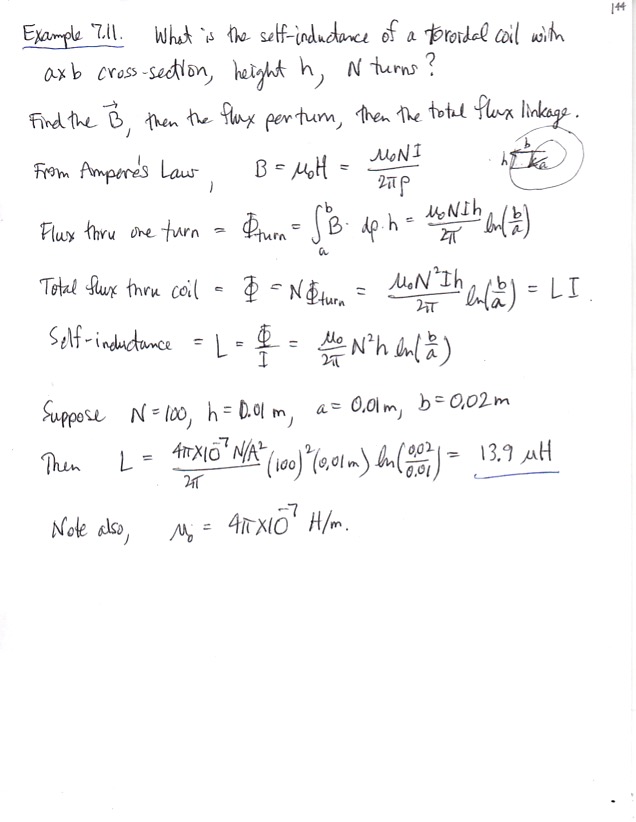 144
Example 7.11. What is the self-inductance of a toroidal coil with
axb cross-section, height h, N turns?
Find the B⃗, then the flux per turn, then the total flux linkage.
From Ampere's Law, B = μ₀H = μ₀NI / 2πρ
b
h a
Flux thru one turn = Φ_turn = ∫_a^b B · dρ · h = μ₀NIh / 2π ln(b/a)
Total flux thru coil = Φ = NΦ_turn = μ₀N²Ih / 2π ln(b/a) = LI.
Self-inductance = L = Φ/I = μ₀/2π N²h ln(b/a)
Suppose N=100, h=0.01 m, a=0.01m, b=0.02m
Then L = 4π×10⁻⁷ N/A² / 2π (100)² (0.01m) ln(0.02/0.01) = 13.9 μH
Note also, μ₀ = 4π×10⁻⁷ H/m.